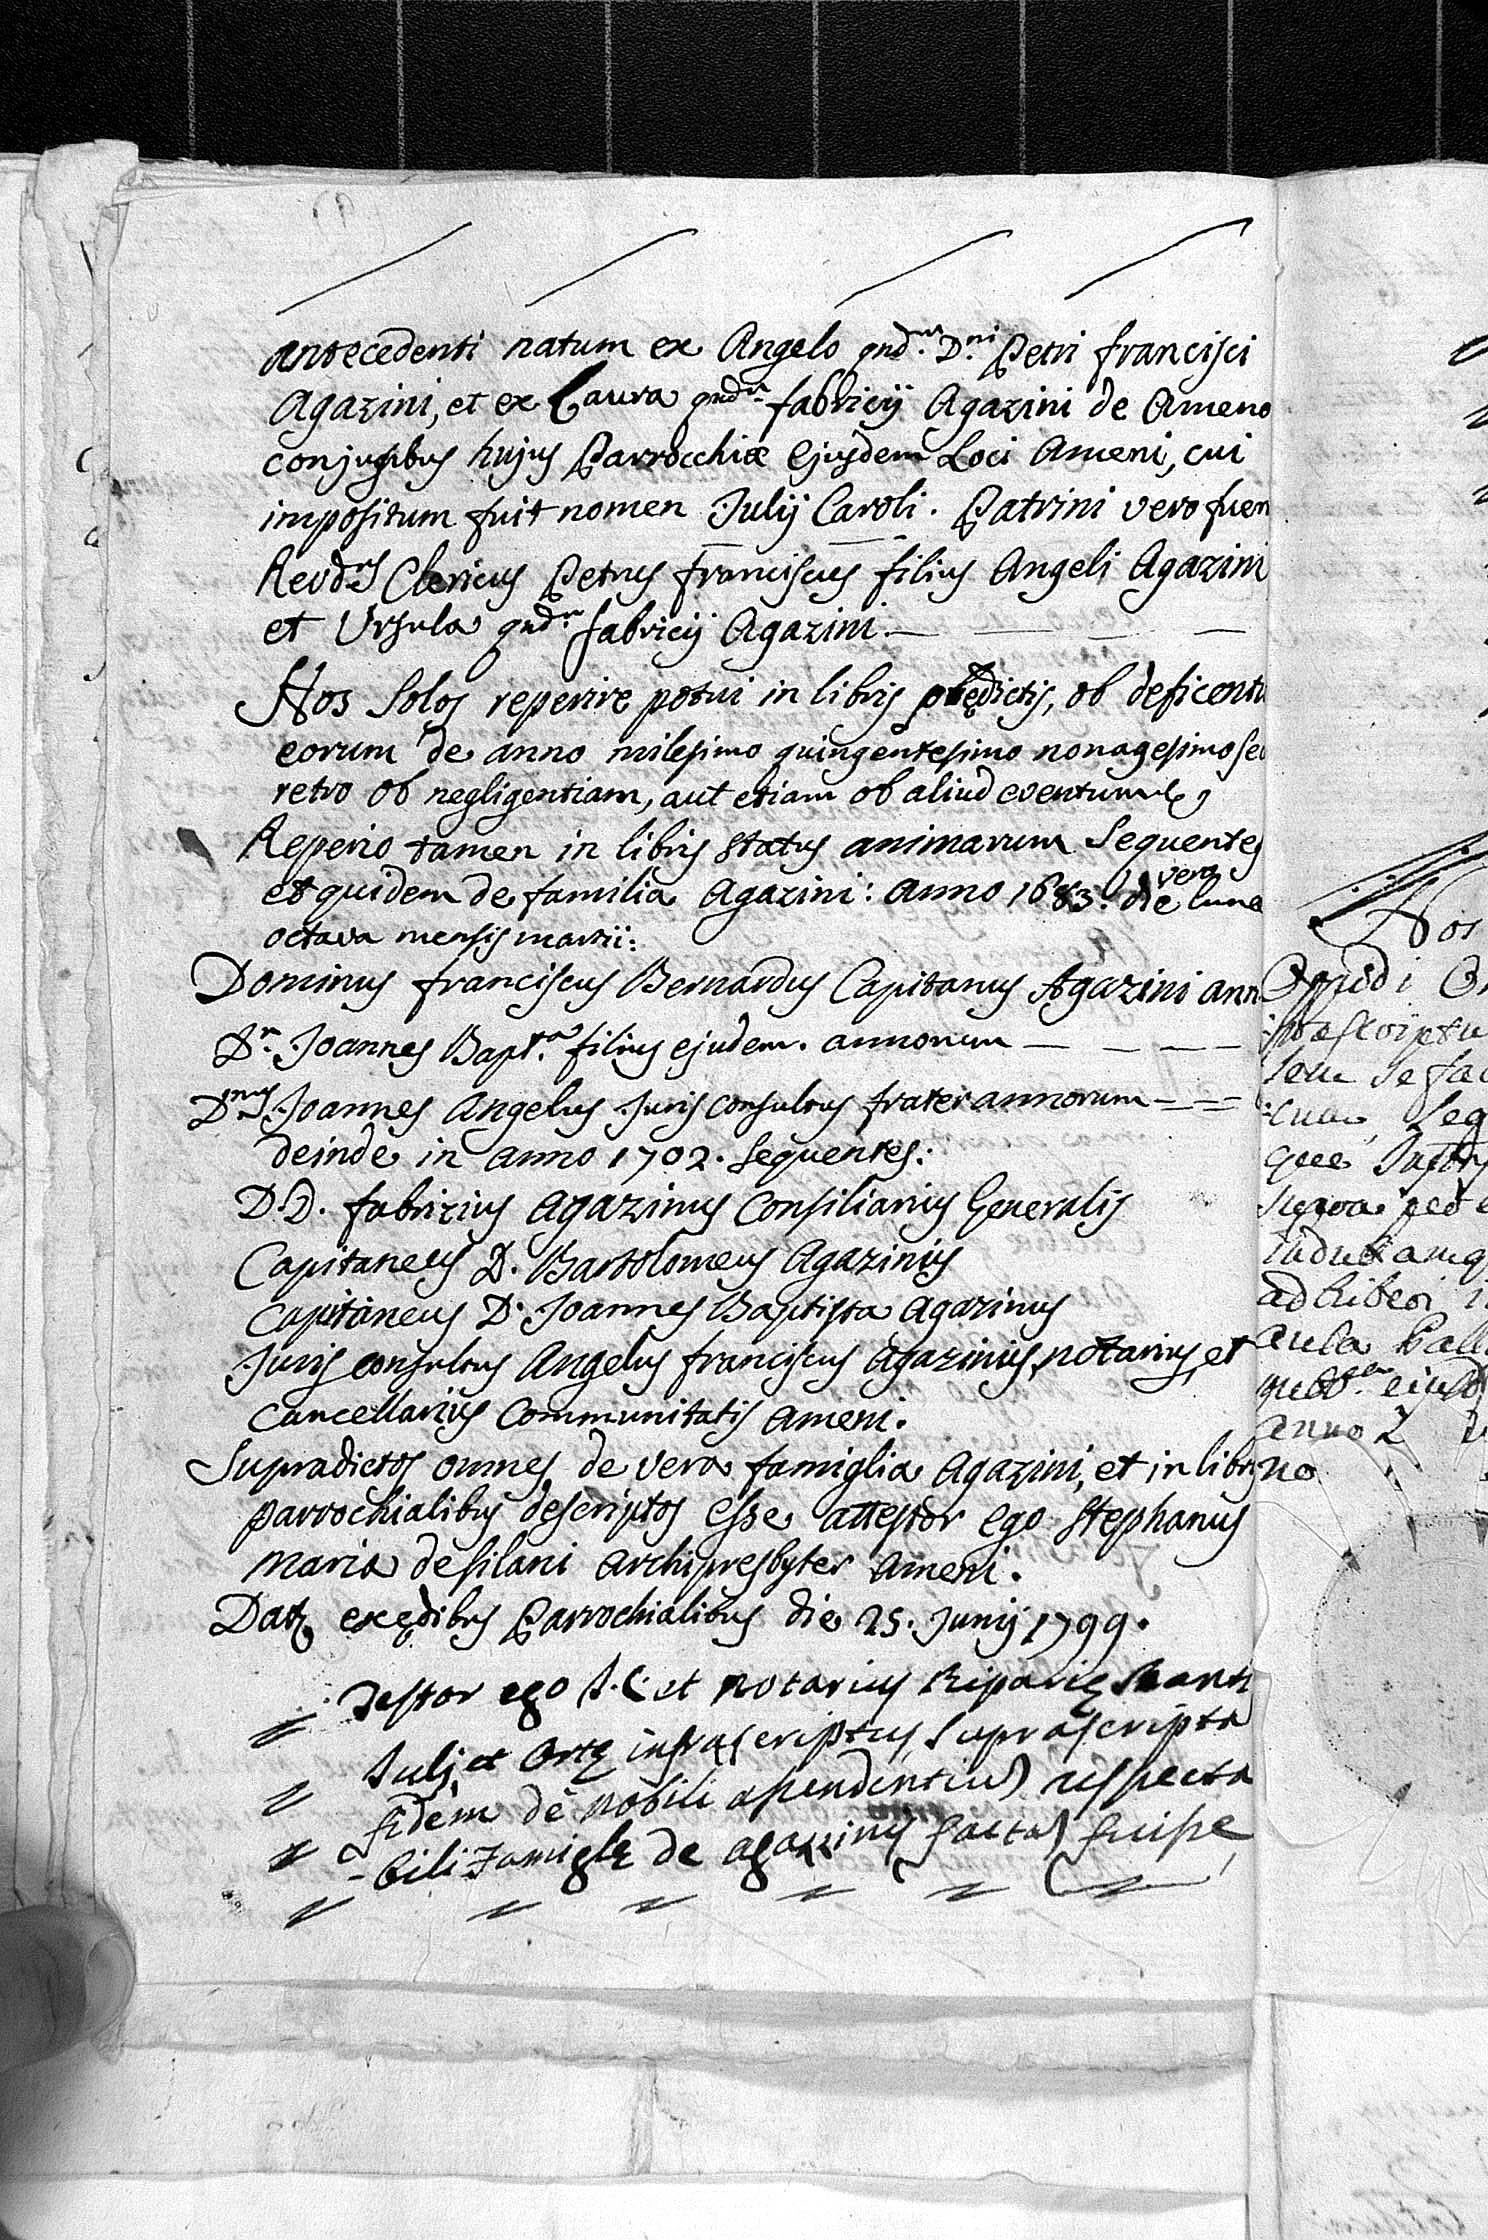 antecedenti natum ex Angelo qnd.m D.ni Petri francisci
Agazini, et ex Laura qndm fabricij Agazini de Ameno
conjugibus hujus Parrocchiæ Ejusdem Loci Ameni, cui
impositum fuit nomen Julij Caroli. Patrini vero fuer
Revdus Clericus Petrus franciscus filius Angeli Agazini
et Ursula qnd.m fabricij Agazini.
Hos Solos reperire potui in libris prędictis, ob deficent
eorum de anno milesimo quingentesimo nonagesimo se
retro ob negligentiam, aut etiam ob aliud eventum
Reperio tamen in libris status animarum Sequentes
et quidem de familia Agazini: anno 1683. die vero lunæ
octava mensis martii:
Dominus franciscus Bernardus Capitanus Agazini ann
D.n Joannes Bapt.a filius ejudem. annorum
Dnus Joannes Angelus Juris consultus frater annorum
deinde in anno 1702. Sequentes:
D.D. fabricius Agazinus Consiliarius Generalis
Capitaneus D. Bartolomeus Agazinius
Capitaneus D. Joannes Baptista Agazinus
Juris consultus Angelus franciscus Agazinius, notarius, et
Cancellarius Communitatis Ameni.
Supradictos omnes de vera famiglia Agazini, et in libris
parrochialibus descriptos Esse attestor ego Stephanus
Maria de filani archipresbyter Ameni.
Dat. ex ędibus Parrochialibus die 25. Junij 1799.
Testor ego J. C. et Notarius Riparię Sancti
Julij et Ortę infrascriptus suprascripta
fidem de nobili
bili Famiglę de Agazzinis factas fuisse
Hos
Oppidi